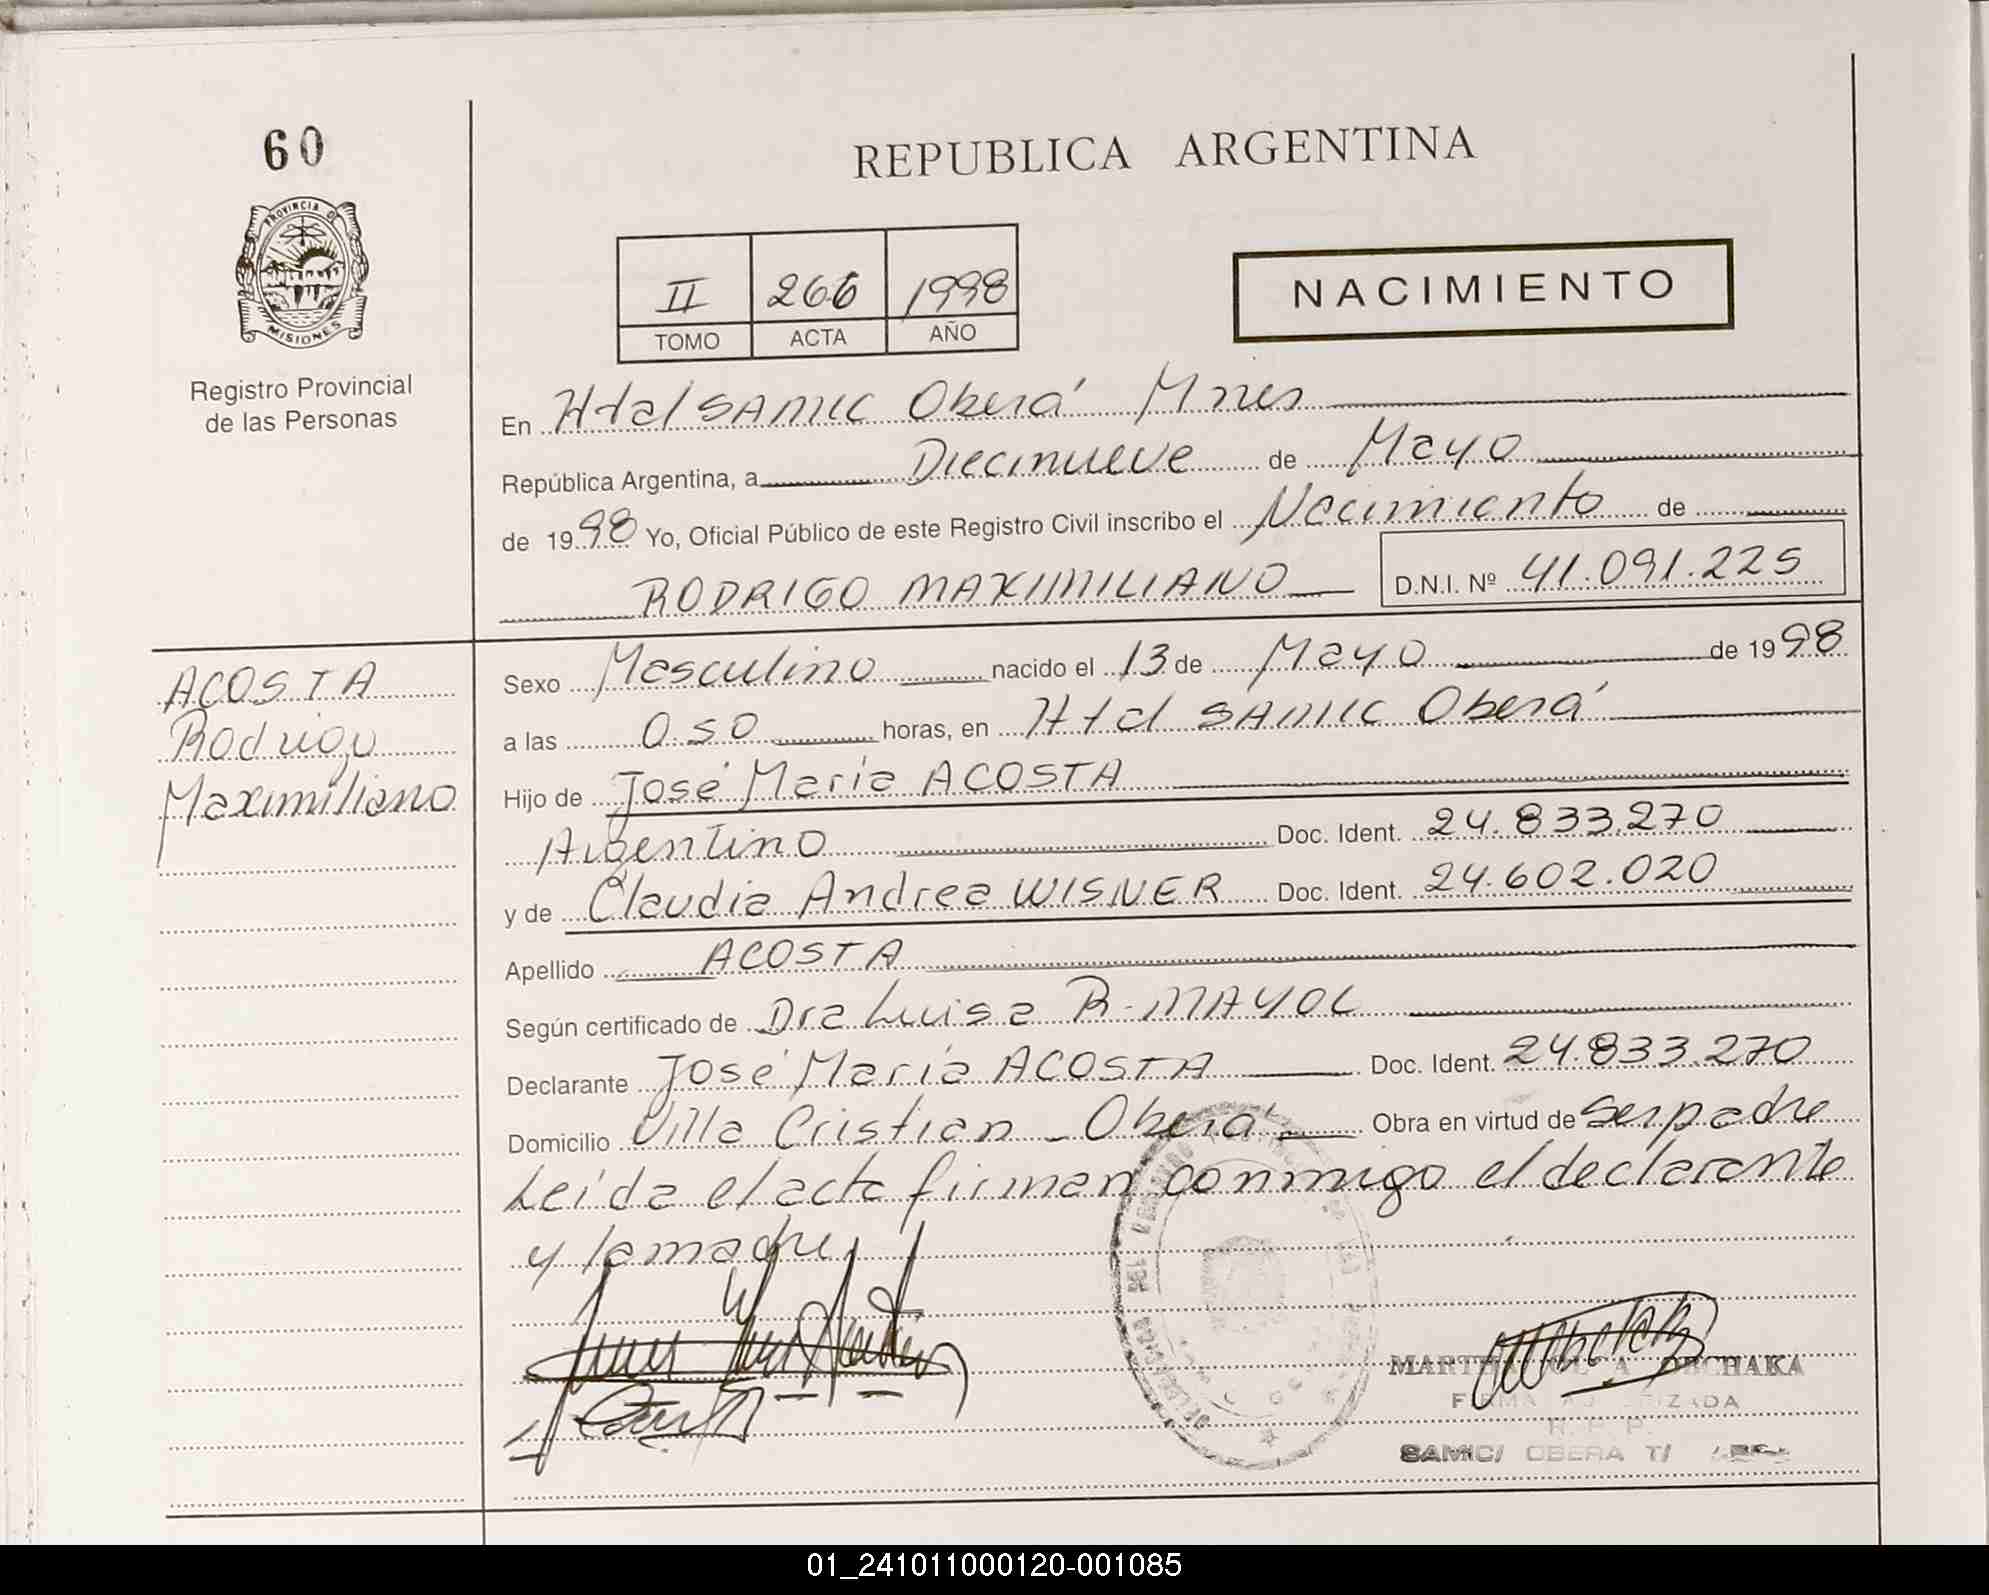 60
REPUBLICA ARGENTINA
PROVINCIA DE
MISIONES
Registro Provincial
de las Personas
II 266 1998
TOMO ACTA AÑO
NACIMIENTO
En Htal SAMIC Oberá Mnes
República Argentina, a Diecinueve de Mayo
de 1998 Yo, Oficial Público de este Registro Civil inscribo el Nacimiento de
RODRIGO MAXIMILIANO D.N.I. Nº 41.091.225
ACOSTA
Rodrigo
Maximiliano
Sexo Masculino nacido el 13 de Mayo de 1998
a las 0.50 horas, en Htal SAMIC Oberá
Hijo de José María ACOSTA
Argentino Doc. Ident. 24.833.270
y de Claudia Andrea WISNER Doc. Ident. 24.602.020
Apellido ACOSTA
Según certificado de Dra Luisa R. MAYOL
Declarante José María ACOSTA Doc. Ident. 24.833.270
Domicilio Villa Cristian - Oberá Obra en virtud de ser padre
Leída el acta firman conmigo el declarante
y la madre
MARTHA CHAKA
FIRMA AUTORIZADA
R. P. P.
SAMIC/ OBERA T/
01_241011000120-001085